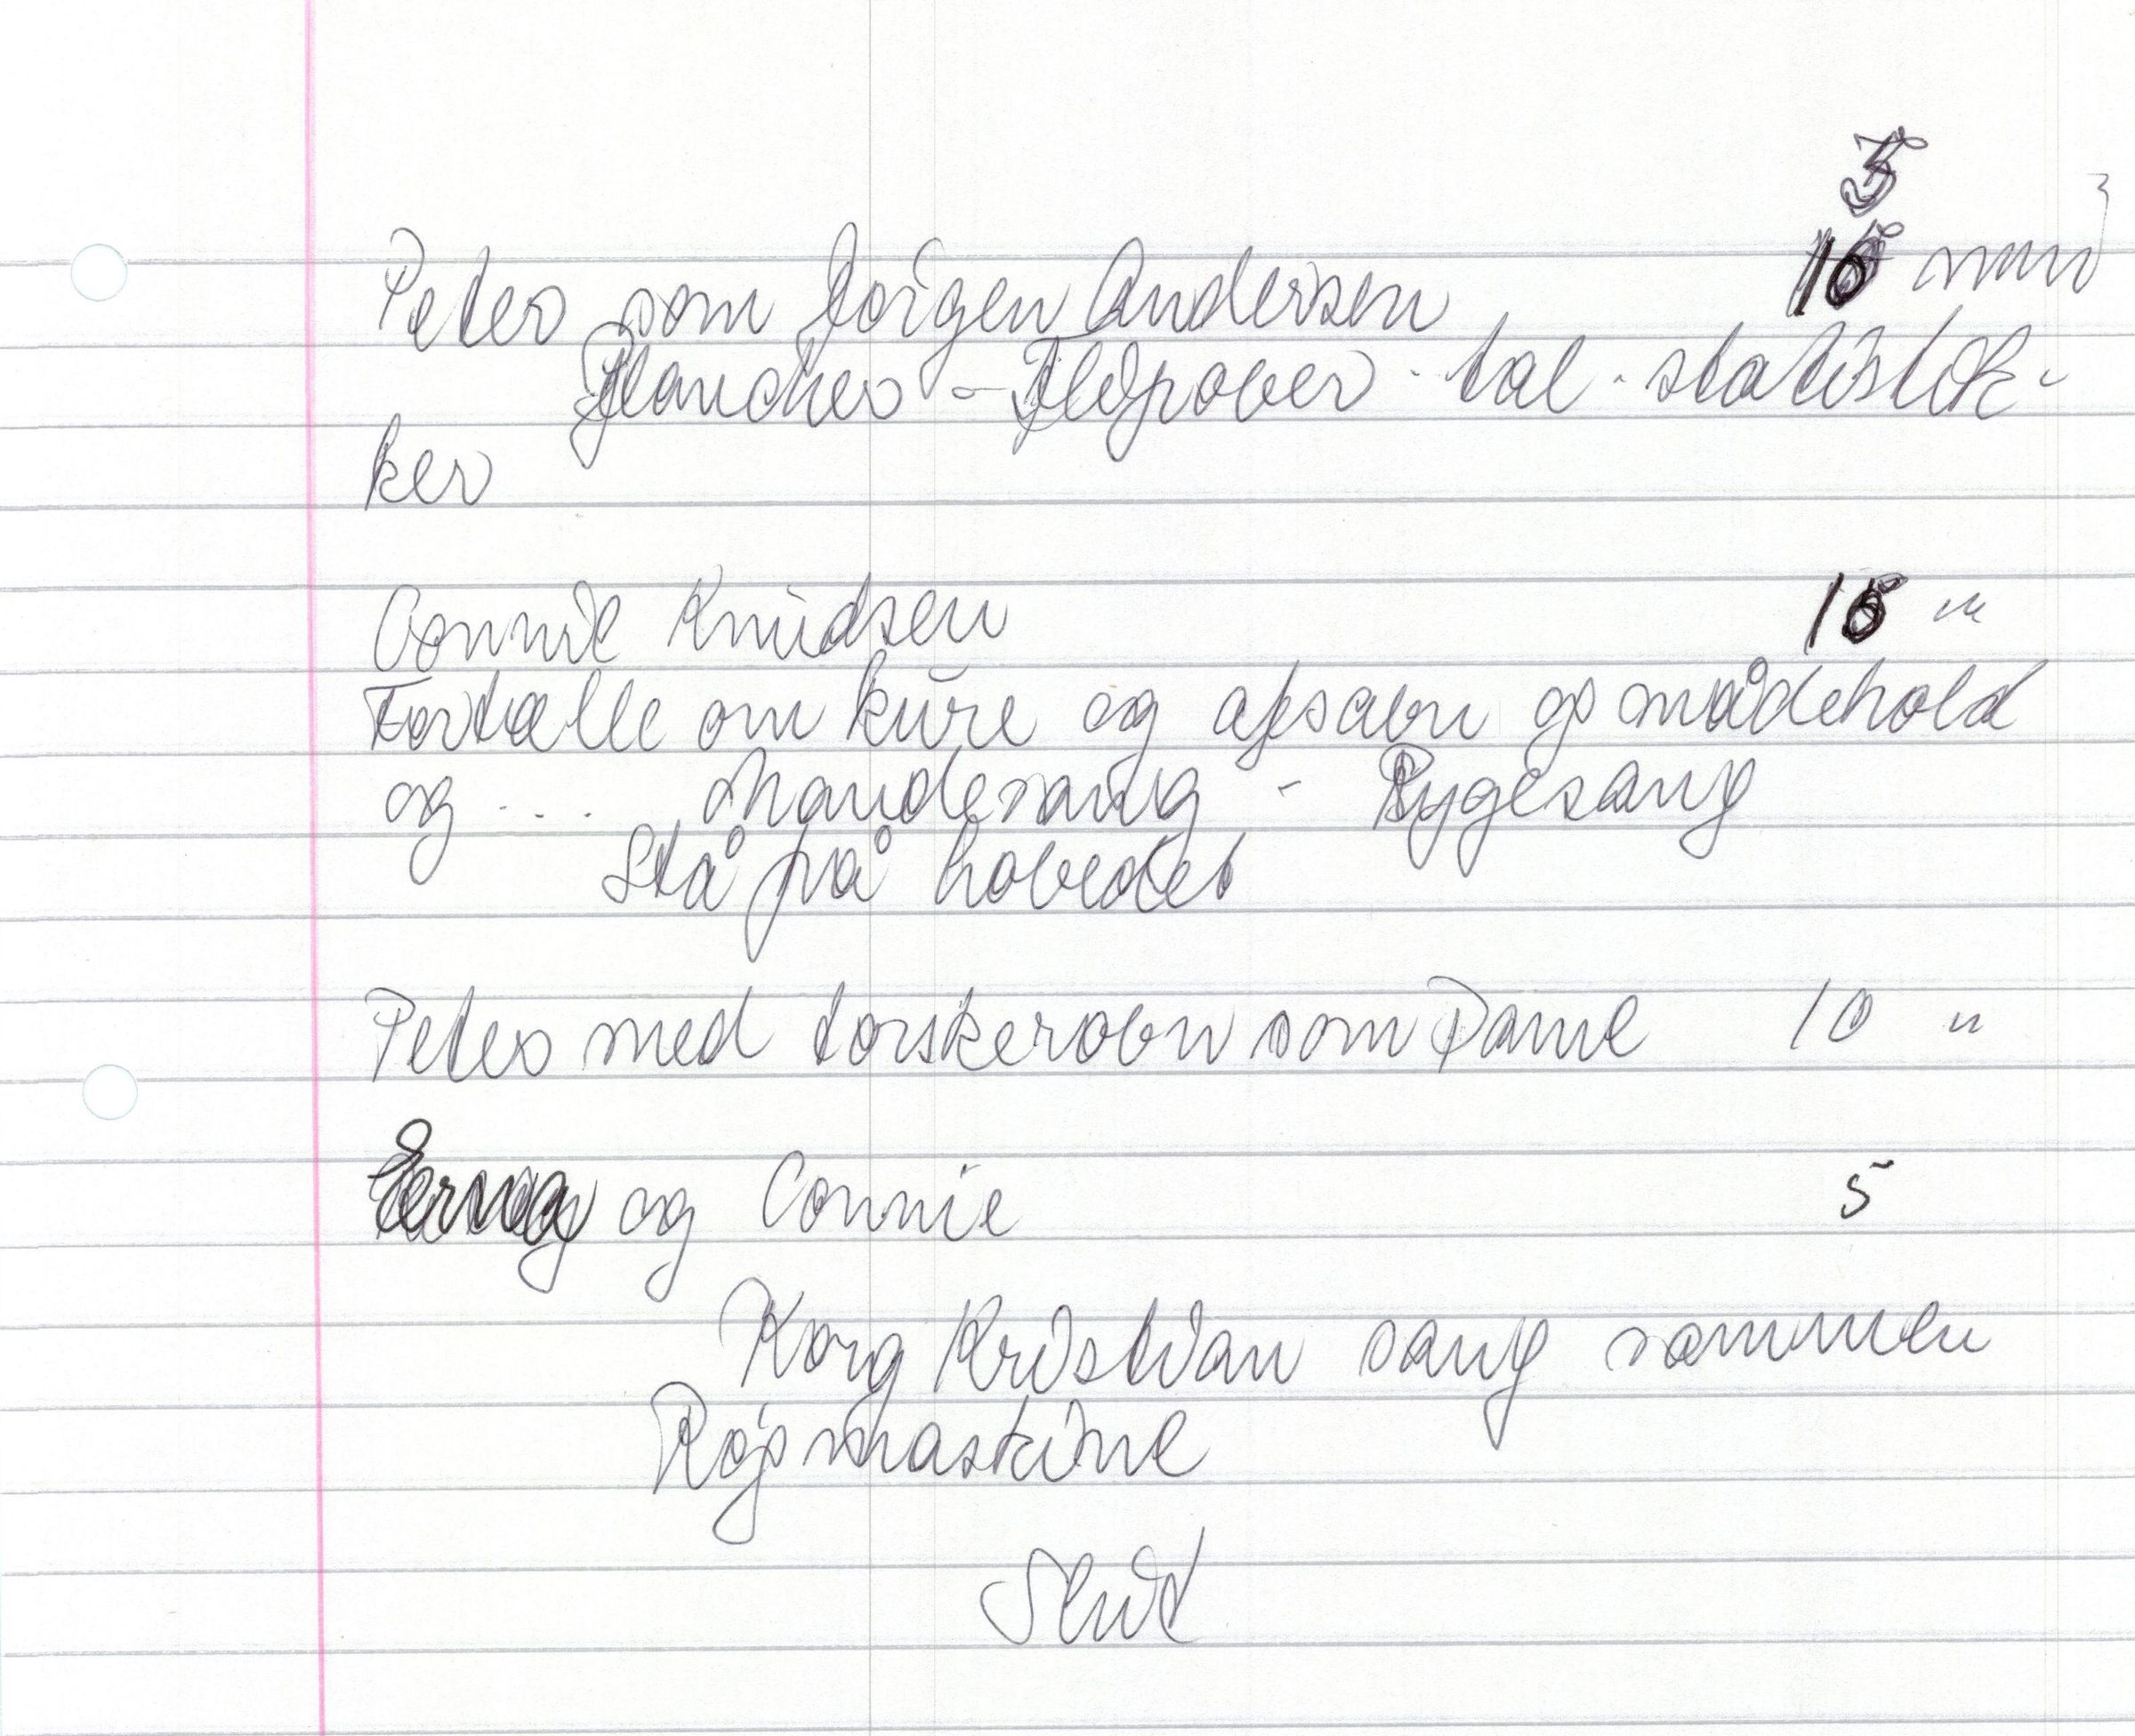 5
Peter som Jørgen Andersen 10 min
Plancher - Fedprøver - tal - statistik-
ker
Connie Knudsen 15 "
Fortælle om kure og afsavn og mådehold
og ... Mandesang - Rygesang
Stå på hovedet
Peter med torskerobn som Dame 10 "
og Connie 5
Kong Kristian sang sammen
Røgmaskine
Slut